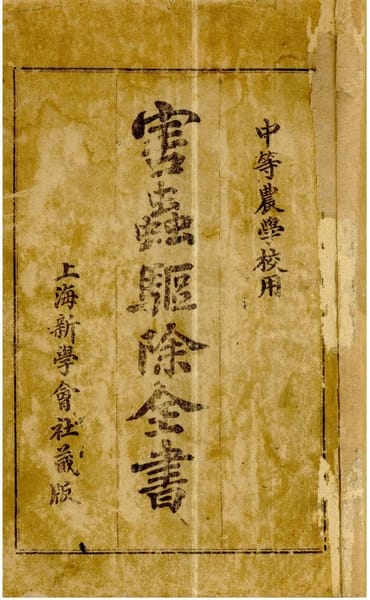 中等農學校用
害蟲驅除全書
上海新學會社藏版